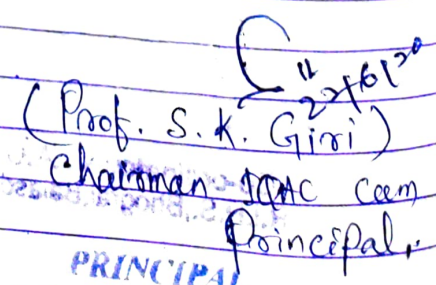 22/6/20
(Prof. S. K. Giri)
Chairman IQAC Cum
Principal,
PRINCIPAL